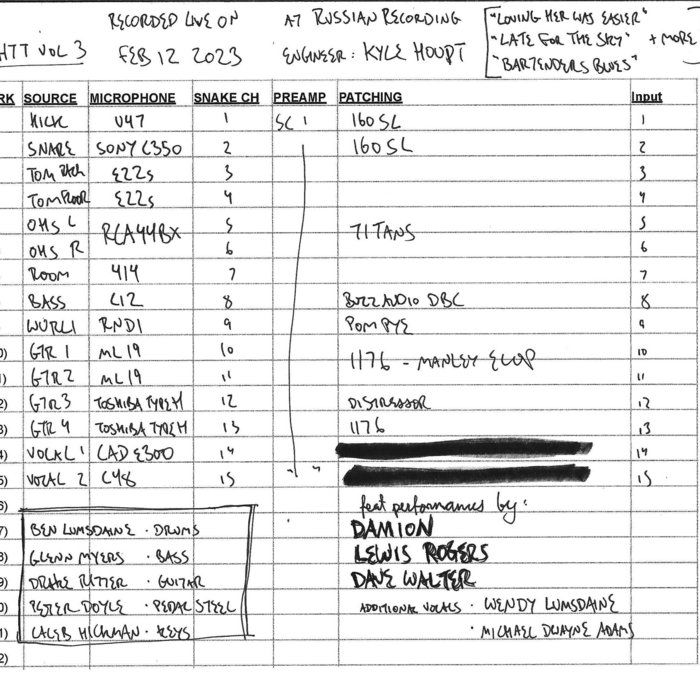 RECORDED LIVE ON AT RUSSIAN RECORDING "LOVING HER WAS EASIER"
HTT VOL 3 FEB 12 2023 ENGINEER: KYLE HOUPT "LATE FOR THE SKY" + MORE
"BARTENDERS BLUES"
RK SOURCE MICROPHONE SNAKE CH PREAMP PATCHING Input
KICK U47 1 SC 1 160SL 1
SNARE SONY C350 2 160SL 2
TOM RACK E22s 3 3
TOM FLOOR E22s 4 4
OHS L RCA44BX 5 TITANS 5
OHS R 6 6
ROOM 414 7 7
BASS C12 8 BUZZ AUDIO DBC 8
WURLI RNDI 9 POM PYE 9
0) GTR 1 ML19 10 1176 - MANLEY ELOP 10
1) GTR 2 ML19 11 11
2) GTR 3 TOSHIBA TYPE H 12 DISTRESSOR 12
3) GTR 4 TOSHIBA TYPE H 13 1176 13
4) VOCAL 1 CAD E300 14 14
5) VOCAL 2 C48 15 " " 15
6) feat performances by:
7) BEN LUMSDAINE · DRUMS DAMION
8) GLENN MYERS · BASS LEWIS ROGERS
9) DRAKE RITTER · GUITAR DAVE WALTER
0) PETER DOYLE · PEDAL STEEL ADDITIONAL VOCALS · WENDY LUMSDAINE
1) CALEB HICKMAN · KEYS · MICHAEL DWAYNE ADAMS
2)